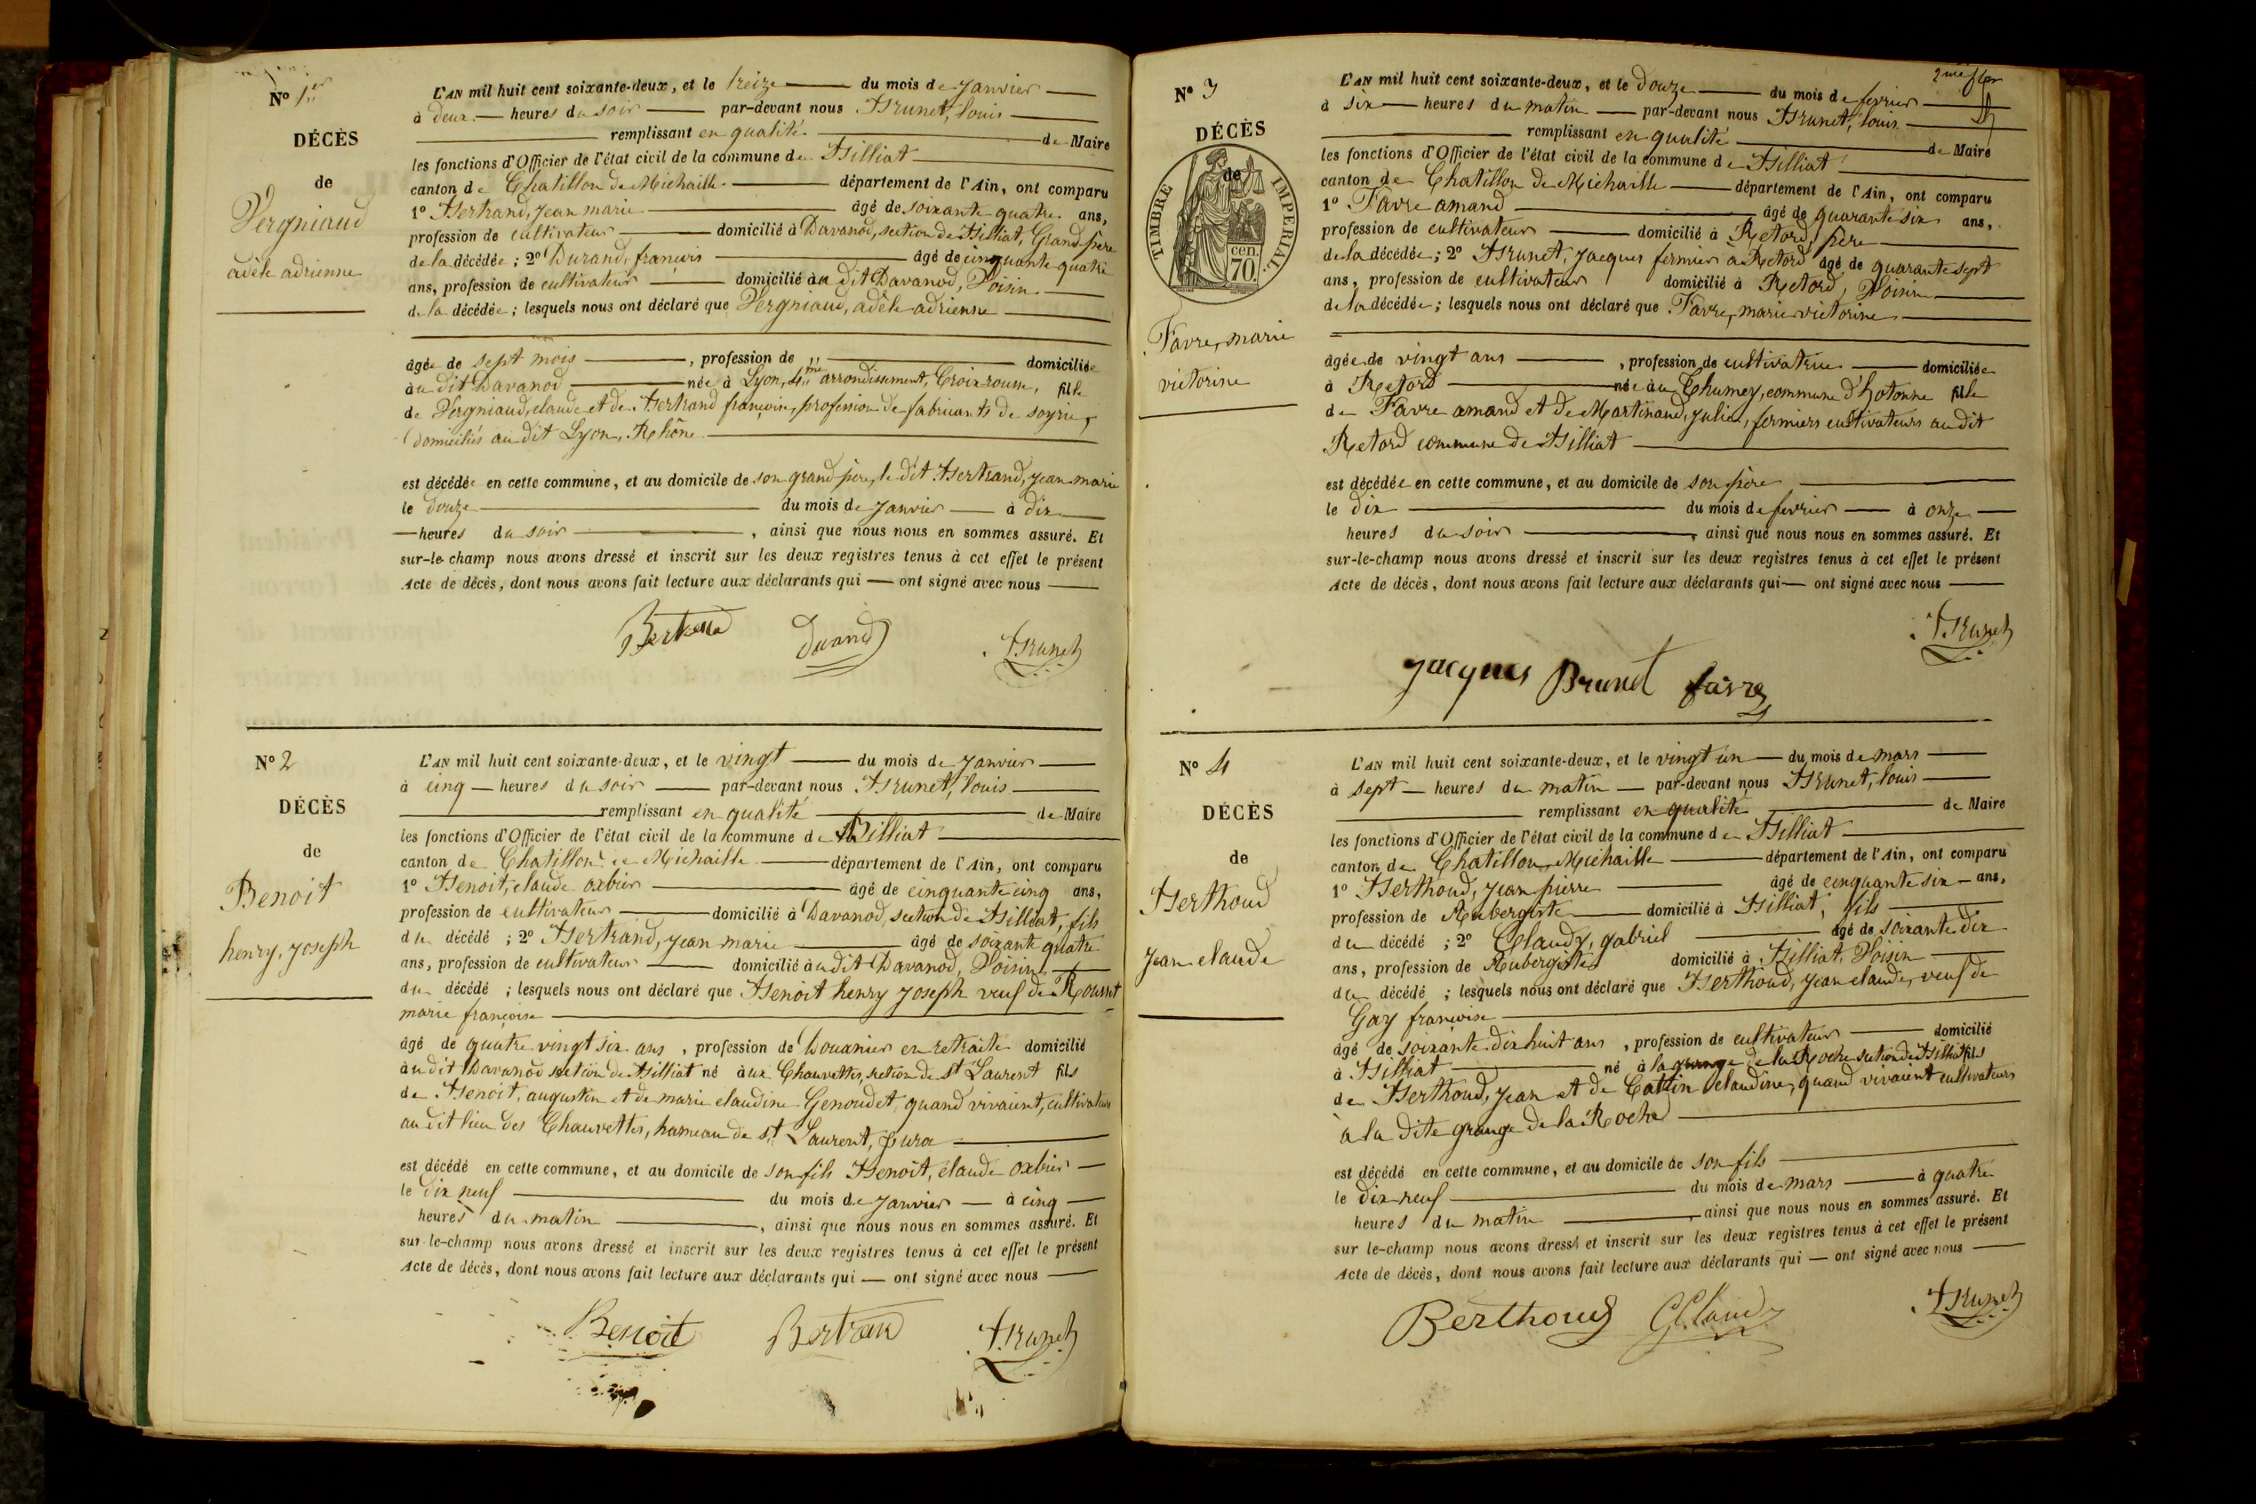 N° 1er
DÉCÈS
de
Vergniaud
adèle adrienne
L'AN mil huit cent soixante-deux, et le treize du mois de Janvier
à deux heures du soir par-devant nous Brunet, louis
remplissant en qualité de Maire
les fonctions d'Officier de l'état civil de la commune de Billiat
canton de Chatillon de Michaille département de l'Ain, ont comparu
1° Bertrand, jean marie âgé de soixante quatre ans,
profession de cultivateur domicilié à Davanod, section de Billiat, Grand père
de la décédée ; 2° Durand, françois âgé de cinquante quatre
ans, profession de cultivateur domicilié au dit Davanod, Voisin
de la décédée ; lesquels nous ont déclaré que Vergniaud, adèle adrienne
âgée de sept mois , profession de " domiciliée
au dit Davanod née à Lyon, 4me arrondissement, Croix rousse, fille
de Vergniaud, claude et de Bertrand françoise, profession de fabricants de soyrie,
domiciliés au dit Lyon, Rhône
est décédée en cette commune, et au domicile de son grand père, le dit Bertrand, jean marie
le douze du mois de Janvier à dix
heures du soir , ainsi que nous nous en sommes assuré. Et
sur-le-champ nous avons dressé et inscrit sur les deux registres tenus à cet effet le présent
Acte de décès, dont nous avons fait lecture aux déclarants qui ont signé avec nous
Bertrand Durand Brunet
N° 2
DÉCÈS
de
Benoit
henry, joseph
L'AN mil huit cent soixante-deux, et le vingt du mois de Janvier
à cinq heures du soir par-devant nous Brunet, louis
remplissant en qualité de Maire
les fonctions d'Officier de l'état civil de la commune de Billiat
canton de Chatillon de Michaille département de l'Ain, ont comparu
1° Benoit, claude oxbier âgé de cinquante cinq ans,
profession de cultivateur domicilié à Davanod, section de Billiat, fils
du décédé ; 2° Bertrand, jean marie âgé de soixante quatre
ans, profession de cultivateur domicilié au dit Davanod, Voisin
du décédé ; lesquels nous ont déclaré que Benoit henry joseph veuf de Rousset
marie françoise
âgé de quatre vingt six ans , profession de Douanier en retraite domicilié
au dit Davanod section de Billiat né aux Chauvettes, section de st Laurent fils
de Benoit, augustin et de marie claudine Genoudet, quand vivaient, cultivateurs
au dit lieu des Chauvettes, hameau de st Laurent, Jura
est décédé en cette commune, et au domicile de son fils Benoit, claude oxbier
le dix neuf du mois de Janvier à cinq
heures du matin , ainsi que nous nous en sommes assuré. Et
sur-le-champ nous avons dressé et inscrit sur les deux registres tenus à cet effet le présent
Acte de décès, dont nous avons fait lecture aux déclarants qui ont signé avec nous
Benoit Bertran Brunet
2me
N° 3
DÉCÈS
de
TIMBRE IMPERIAL.
cen.
70.
Favre, marie
victorine
L'AN mil huit cent soixante-deux, et le douze du mois de fevrier
à six heures du matin par-devant nous Brunet, louis
remplissant en qualité de Maire
les fonctions d'Officier de l'état civil de la commune de Billiat
canton de Chatillon de Michaille département de l'Ain, ont comparu
1° Favre amand âgé de quarante six ans,
profession de cultivateur domicilié à Retord, père
de la décédée ; 2° Brunet, jacques fermier à Retord âgé de quarante sept
ans, profession de cultivateur domicilié à Retord, Voisin
de la décédée ; lesquels nous ont déclaré que Favre, marie victorine
âgée de vingt ans , profession de cultivatrice domiciliée
à Retord née au Thumey, commune d'hotonne fille
de Favre amand et de Martinand, julie, fermiers cultivateurs au dit
Retord commune de Billiat
est décédée en cette commune, et au domicile de son père
le dix du mois de fevrier à onze
heures du soir , ainsi que nous nous en sommes assuré. Et
sur-le-champ nous avons dressé et inscrit sur les deux registres tenus à cet effet le présent
Acte de décès, dont nous avons fait lecture aux déclarants qui ont signé avec nous
Brunet
jacques Brunet favre
N° 4
DÉCÈS
de
Berthoud
jean claude
L'AN mil huit cent soixante-deux, et le vingt un du mois de mars
à sept heures du matin par-devant nous Brunet, louis
remplissant en qualité de Maire
les fonctions d'Officier de l'état civil de la commune de Billiat
canton de Chatillon, Michaille département de l'Ain, ont comparu
1° Berthoud, jean pierre âgé de cinquante six ans,
profession de Aubergiste domicilié à Billiat, fils
du décédé ; 2° Claudy, gabriel âgé de soixante dix
ans, profession de Aubergiste domicilié à Billiat, Voisin
du décédé ; lesquels nous ont déclaré que Berthoud, jean claude, veuf de
Gay françoise
âgé de soixante dix huit ans , profession de cultivateur domicilié
à Billiat né à la grange de la Roche section de Billiat fils
de Berthoud, jean et de Cattin claudine, quand vivaient cultivateurs
à la dite grange de la Roche
est décédé en cette commune, et au domicile de son fils
le dix neuf du mois de mars à quatre
heures du matin , ainsi que nous nous en sommes assuré. Et
sur le-champ nous avons dressé et inscrit sur les deux registres tenus à cet effet le présent
Acte de décès, dont nous avons fait lecture aux déclarants qui ont signé avec nous
Berthoud G Claudy Brunet